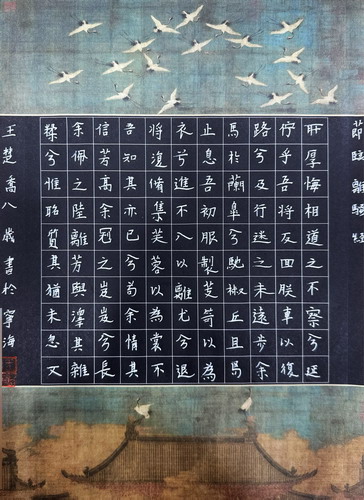 節臨離騷經
所厚悔相道之不察兮延
佇乎吾將反回朕車以復
路兮及行迷之未遠步余
馬於蘭皋兮馳椒丘且焉
止息吾初服製芰荷以為
衣兮進不入以離尤兮退
將復脩集芙蓉以為裳不
吾知其亦已兮苟余情其
信芳高余冠之岌岌兮長
余佩之陸離芳與澤其雜
糅兮惟昭質其猶未忽又
王楚喬八歲書於寧海